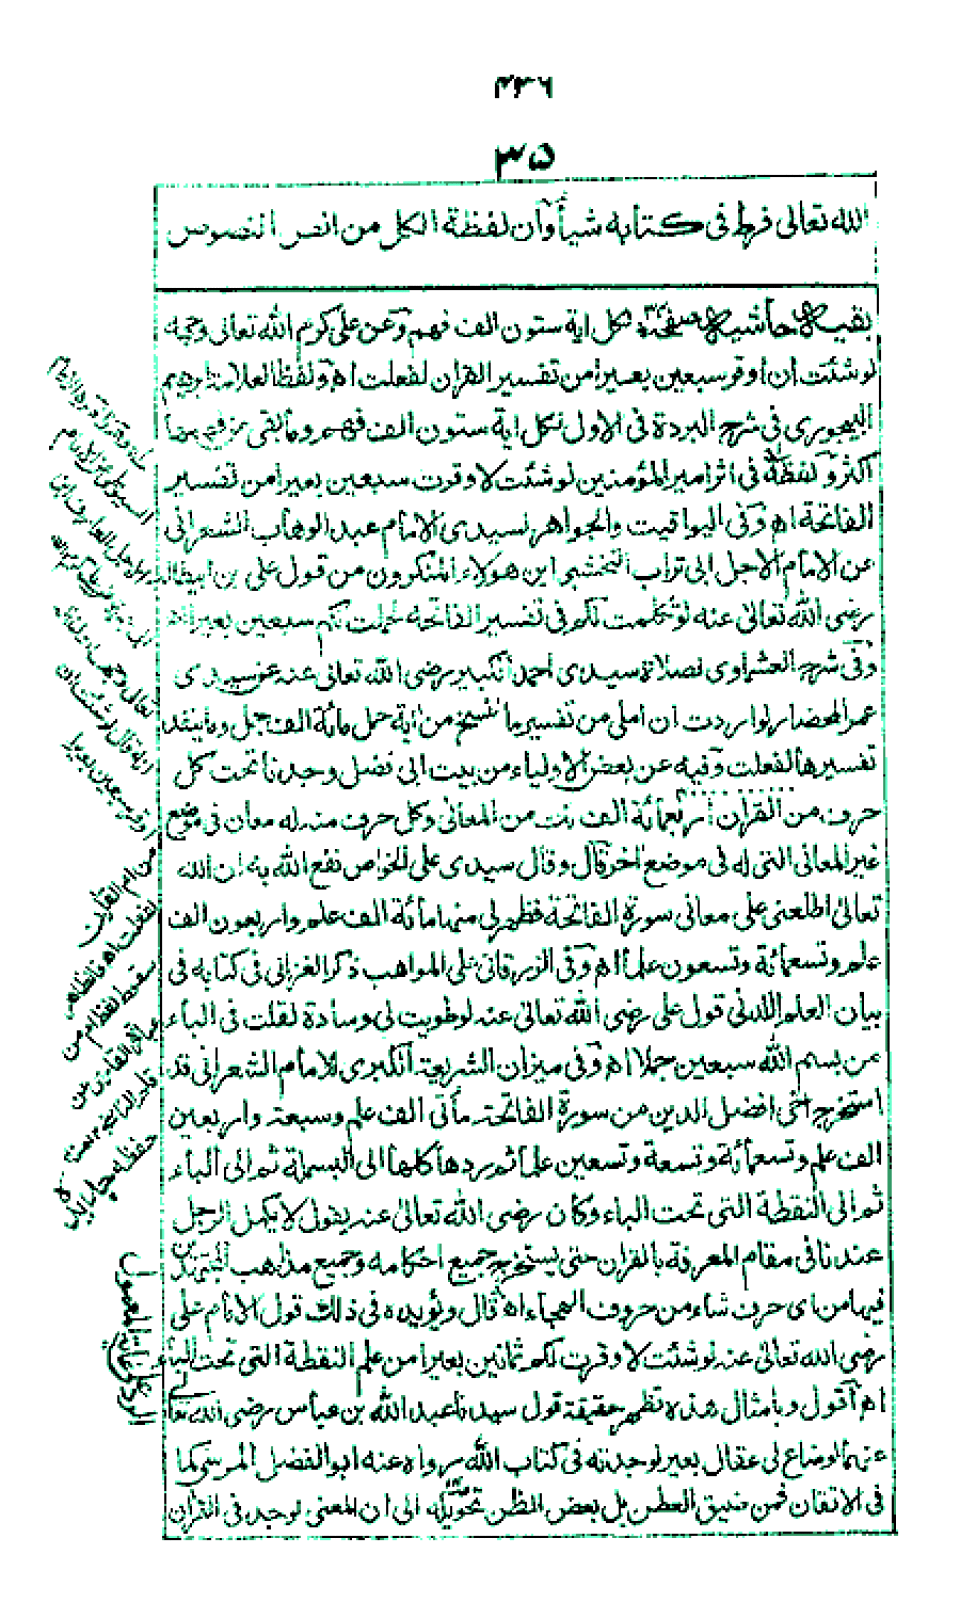 ۴۳۶
۳۵
الله تعالى فرط فى كتابه شيأ وآن لفظة الكل من انص النصوص
بقيه حاشيه صفحه ۳۴ لكل اية ستون الف فهم وعن على كرم الله تعالى وجهه
لوشئت ان اوقر سبعين بعيرا من تفسير القران لفعلت اه ولفظ العلامة ابرهيم
البيجورى فى شرح البردة فى الاول لكل اية ستون الف فهم وما بقى من فهمها
اكثر ولفظه فى اثر امير المؤمنين لوشئت لاوقرت سبعين بعيرا من تفسير
الفاتحة اه وفى اليواقيت والجواهر لسيدى الامام عبد الوهاب الشعرانى
عن الامام الاجل ابى تراب النخشبى اين هؤلاء المنكرون من قول على بن ابيطالب
رضى الله تعالى عنه لو تكلمت لكم فى تفسير الفاتحة لحملت لكم سبعين بعيرا اه
وفى شرح العشماوى لصلاة سيدى احمد الكبير رضى الله تعالى عنه عن سيدى
عمر المحضار لو اردت ان املى من تفسير ما ننسخ من اية حمل مائة الف جمل وما ينفد
تفسيرها لفعلت وفيه عن بعض الاولياء من بيت ابى فضل وجدنا تحت كل
حرف من القران اربعمائة الف من المعانى وكل حرف منه له معان فى موضع
غير المعانى التى له فى موضع اخر قال وقال سيدى على الخواص نفع الله به ان الله
تعالى اطلعنى على معانى سورة الفاتحة فظهر لى منها مائة الف علم واربعون الف
علم وتسعمائة وتسعون علما اه وفى الزرقانى على المواهب ذكر الغزالى فى كتابه فى
بيان العلم اللدنى قول على رضى الله تعالى عنه لو طويت لى وسادة لقلت فى الباء
من بسم الله سبعين جملا اه وفى ميزان الشريعة الكبرى للامام الشعرانى قد
استخرج اخى افضل الدين من سورة الفاتحة مأتى الف علم وسبعة واربعين
الف علم وتسعمائة وتسعة وتسعين علما ثم ردها كلها الى البسملة ثم الى الباء
ثم الى النقطة التى تحت الباء وكان رضى الله تعالى عنه يقول لا يكمل الرجل
عندنا فى مقام المعرفة بالقران حتى يستخرج جميع احكامه وجميع مذاهب المجتهدين
فيها من اى حرف شاء من حروف الهجاء اه قال ويؤيده فى ذلك قول الامام على
رضى الله تعالى عنه لوشئت لاوقرت لكم ثمانين بعيرا من علم النقطة التى تحت الباء
اه اقول وبامثال هذه تظهر حقيقة قول سيدنا عبد الله بن عباس رضى الله تعالى
عنهما لو ضاع لى عقال بعير لوجدته فى كتاب الله رواه عنه ابو الفضل المرسى كما
فى الاتقان فمن ضيق العطن بل بعض الظن تحويله الى ان المعنى لوجد فى القرآن
السيوطى
تعالى وجهه
انه قال لوشئت ان
اوقر سبعين بعيرا
من ام القران
لفعلت اه فالظاهر
سقوط لفظ ام من